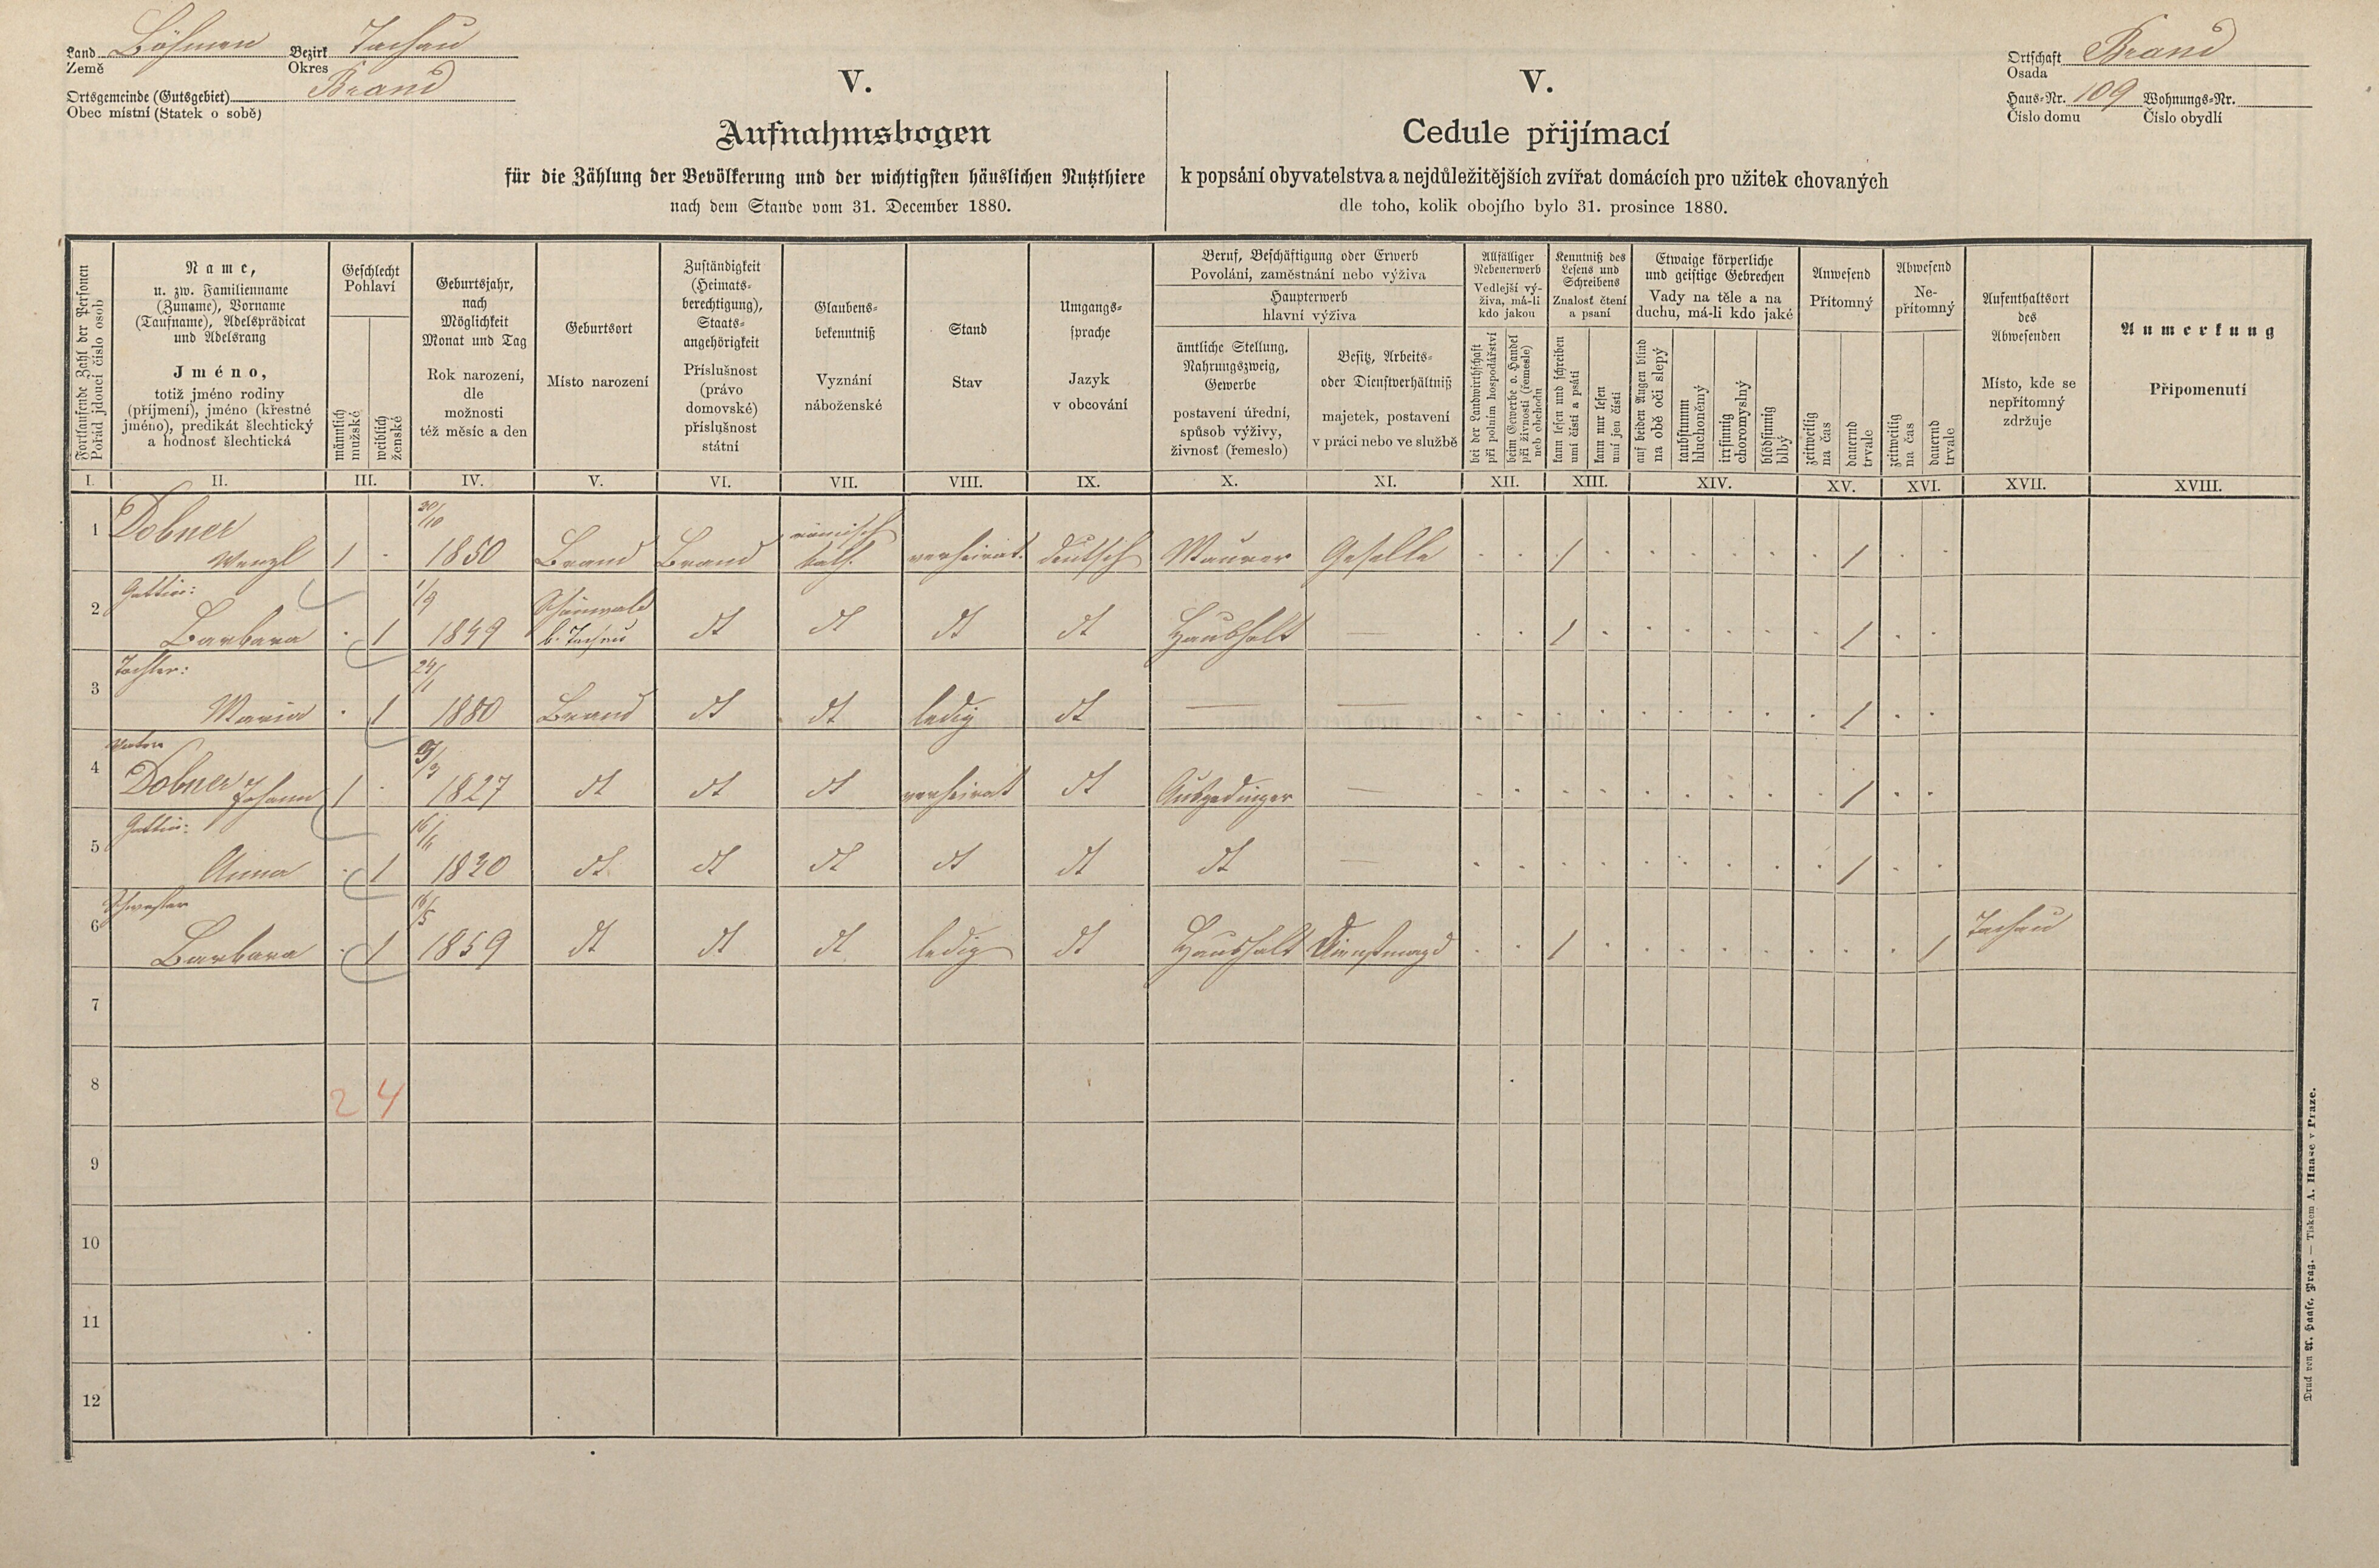 Land Böhmen Bezirk Tachau
Země Okres
Ortsgemeinde (Gutsgebiet) Brand
Obec místní (Statek o sobě)
V.
Aufnahmsbogen
für die Zählung der Bevölkerung und der wichtigsten häuslichen Nutzthiere
nach dem Stande vom 31. December 1880.
V.
Cedule přijímací
k popsání obyvatelstva a nejdůležitějších zvířat domácích pro užitek chovaných
dle toho, kolik obojího bylo 31. prosince 1880.
Ortschaft Brand
Osada
Haus-Nr. 109 Wohnungs-Nr.
Číslo domu Číslo obydlí
Fortlaufende Zahl der Personen
Pořád jdoucí číslo osob
Name,
u. zw. Familienname
(Zuname), Vorname
(Taufname), Adelsprädicat
und Adelsrang
Jméno,
totiž jméno rodiny
(příjmení), jméno (křestné
jméno), predikát šlechtický
a hodnost šlechtická
Geschlecht
Pohlaví
männlich
mužské
weiblich
ženské
Geburtsjahr,
nach
Möglichkeit
Monat und Tag
Rok narození,
dle
možnosti
též měsíc a den
Geburtsort
Místo narození
Zuständigkeit
(Heimats-
berechtigung),
Staats-
angehörigkeit
Příslušnost
(právo
domovské)
příslušnost
státní
Glaubens-
bekenntniß
Vyznání
náboženské
Stand
Stav
Umgangs-
sprache
Jazyk
v obcování
Beruf, Beschäftigung oder Erwerb
Povolání, zaměstnání nebo výživa
Haupterwerb
hlavní výživa
ämtliche Stellung,
Nahrungszweig,
Gewerbe
postavení úřední,
spůsob výživy,
živnosť (řemeslo)
Besitz, Arbeits-
oder Dienstverhältniß
majetek, postavení
v práci nebo ve službě
Allfälliger
Nebenerwerb
Vedlejší vý-
živa, má-li
kdo jakou
bei der Landwirthschaft
při polním hospodářství
beim Gewerbe o. Handel
při živnosti (řemesle)
neb obchodu
Kenntniß des
Lesens und
Schreibens
Znalosť čtení
a psaní
kann lesen und schreiben
umí čísti a psáti
kann nur lesen
umí jen čísti
Etwaige körperliche
und geistige Gebrechen
Vady na těle a na
duchu, má-li kdo jaké
auf beiden Augen blind
na obě oči slepý
taubstumm
hluchoněmý
irrsinnig
choromyslný
blödsinnig
blbý
Anwesend
Přítomný
zeitweilig
na čas
dauernd
trvale
Abwesend
Ne-
přítomný
zeitweilig
na čas
dauernd
trvale
Aufenthaltsort
des
Abwesenden
Místo, kde se
nepřítomný
zdržuje
Anmerkung
Připomenutí
I. II. III. IV. V. VI. VII. VIII. IX. X. XI. XII. XIII. XIV. XV. XVI. XVII. XVIII.
Dobner 20/10 römisch
1 Wenzl 1 · 1850 Brand Brand kath. verheirat. deutsch Maurer Geselle · · 1 · · · · · · 1 · ·
Gattin: 1/9 Schönwald
2 Barbara · 1 1849 b. Tachau dt dt dt dt Haushalt — · · 1 · · · · · · 1 · ·
Tochter: 24/1
3 Maria · 1 1880 Brand dt dt ledig dt — — · · · · · · · · · 1 · ·
Vater
4 Dobner Johann 1 · 1827 dt dt dt verheirat dt Ausgedinger — · · · · · · · · · 1 · ·
Gattin: 16/11
5 Anna · 1 1820 dt dt dt dt dt dt — · · · · · · · · · 1 · ·
Schwester 16/5
6 Barbara · 1 1859 dt dt dt ledig dt Haushalt Dienstmagd · · 1 · · · · · · · · 1 Tachau
7
8 2 4
9
10
11
12
Druck von A. Haase, Prag. — Tiskem A. Haase v Praze.